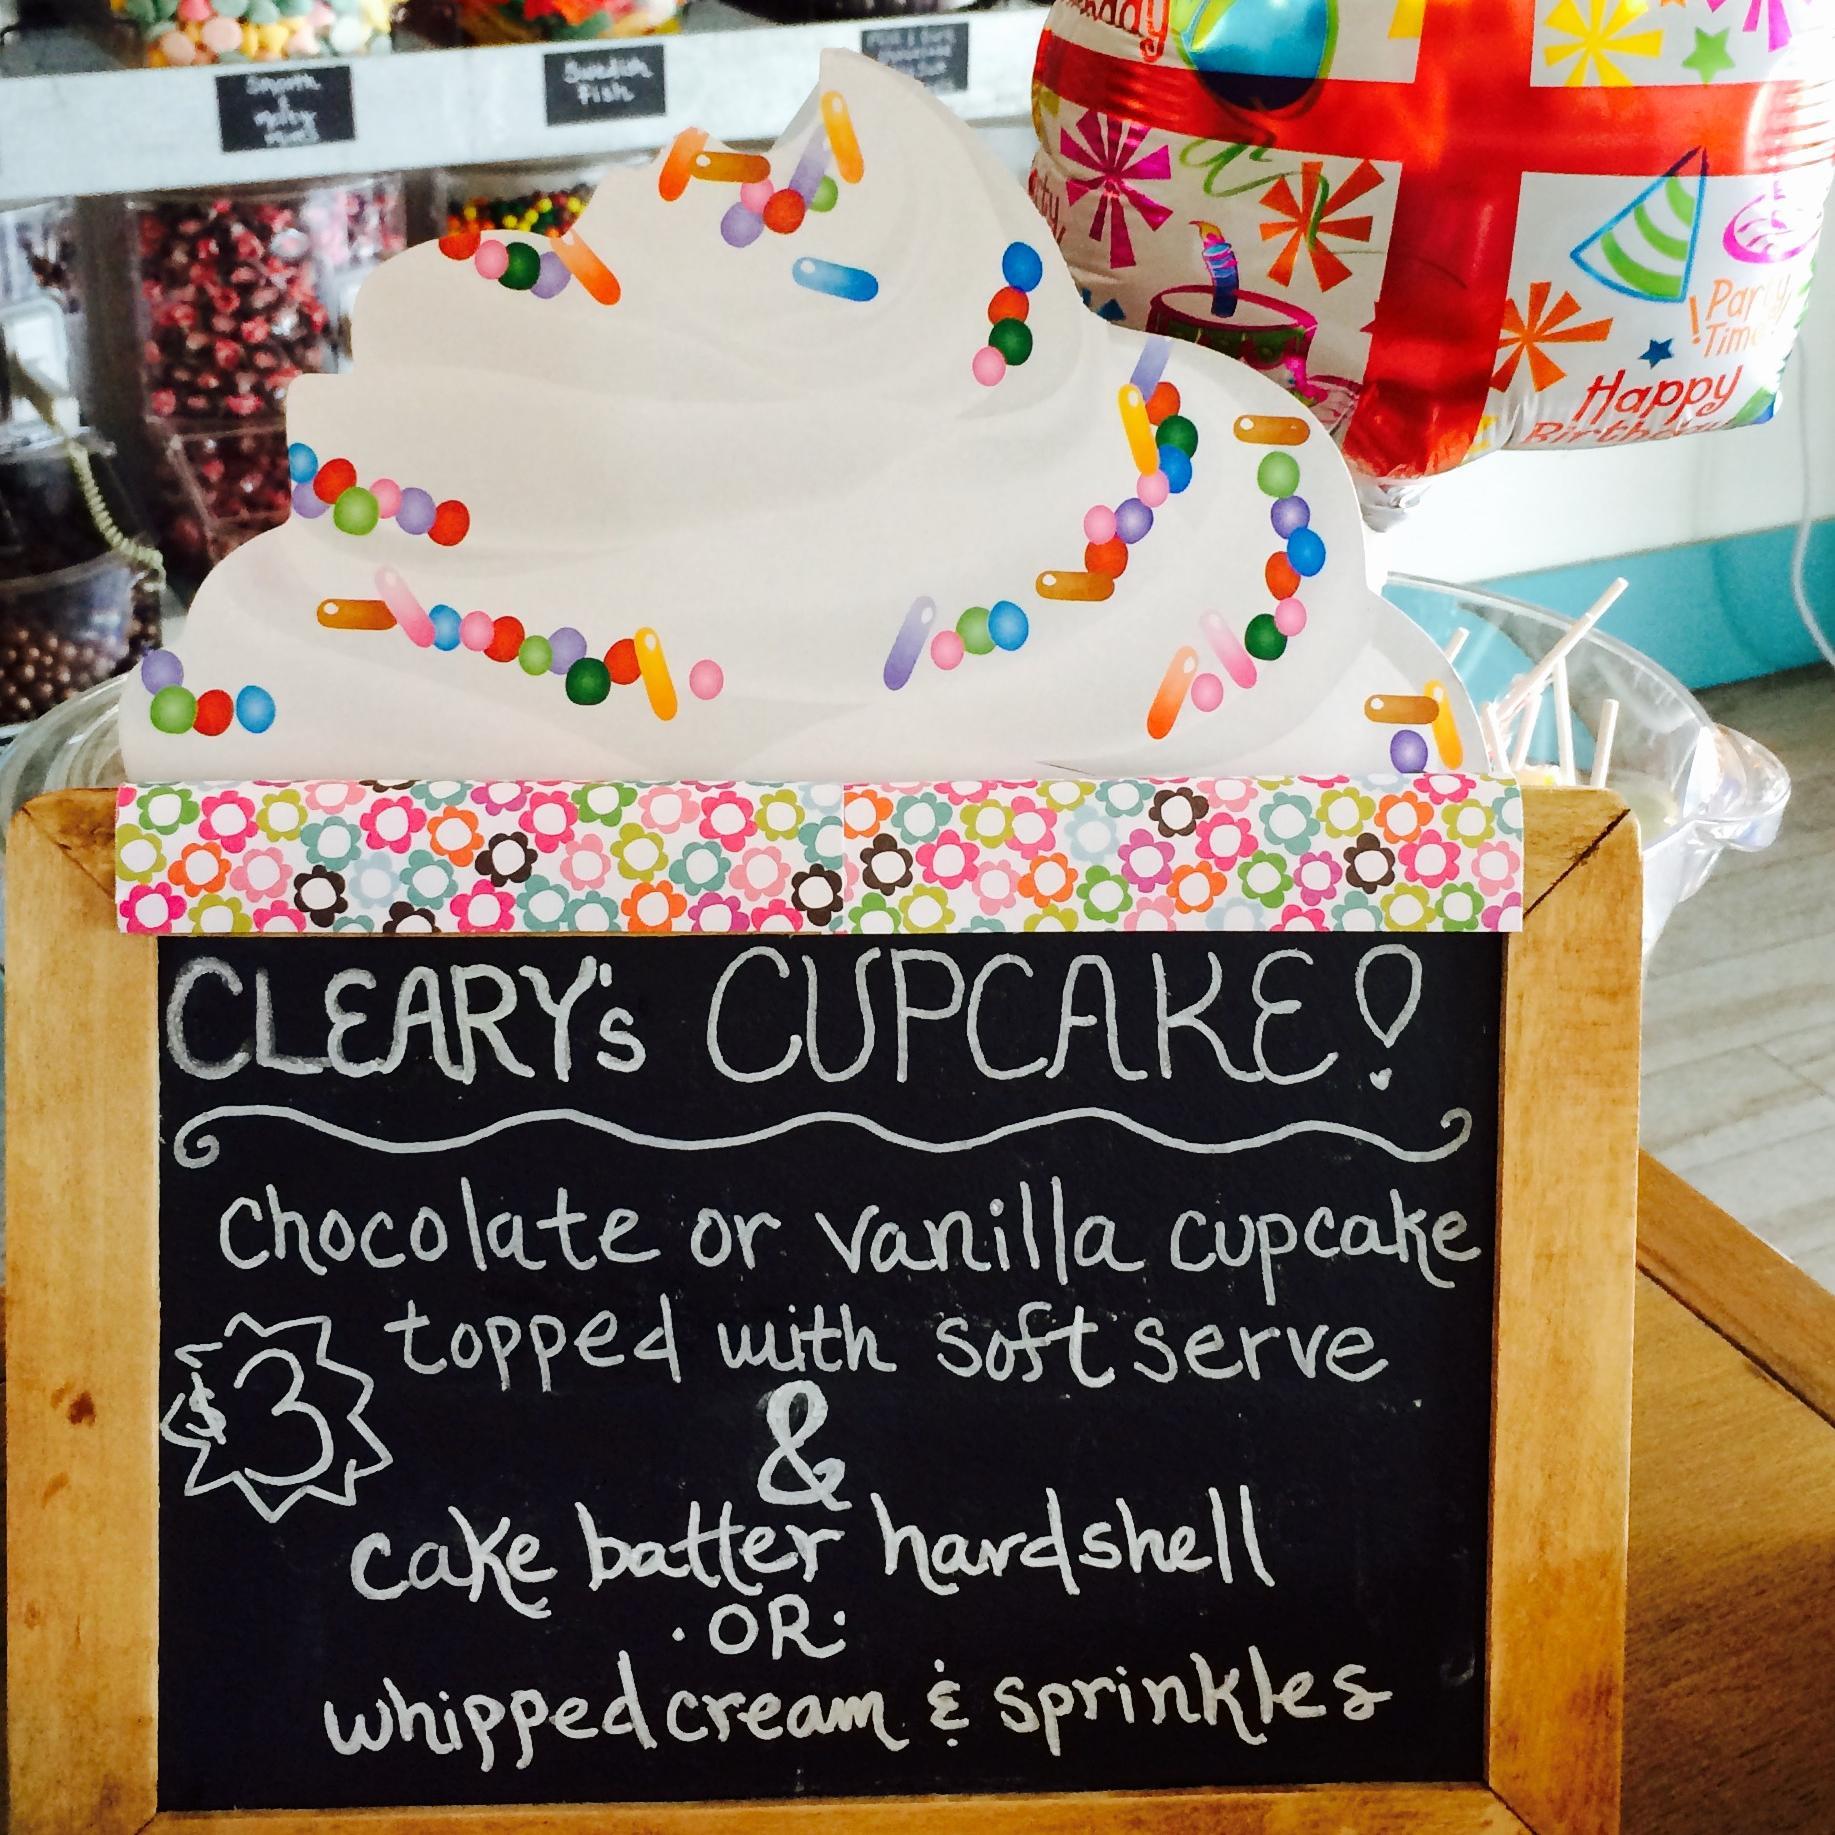 Swedish
Fish
Party
Time!
Happy
Birthday
CLEARY's CUPCAKE!
chocolate or vanilla cupcake
topped with soft serve
$3
&
cake batter hardshell
·OR·
whipped cream & sprinkles